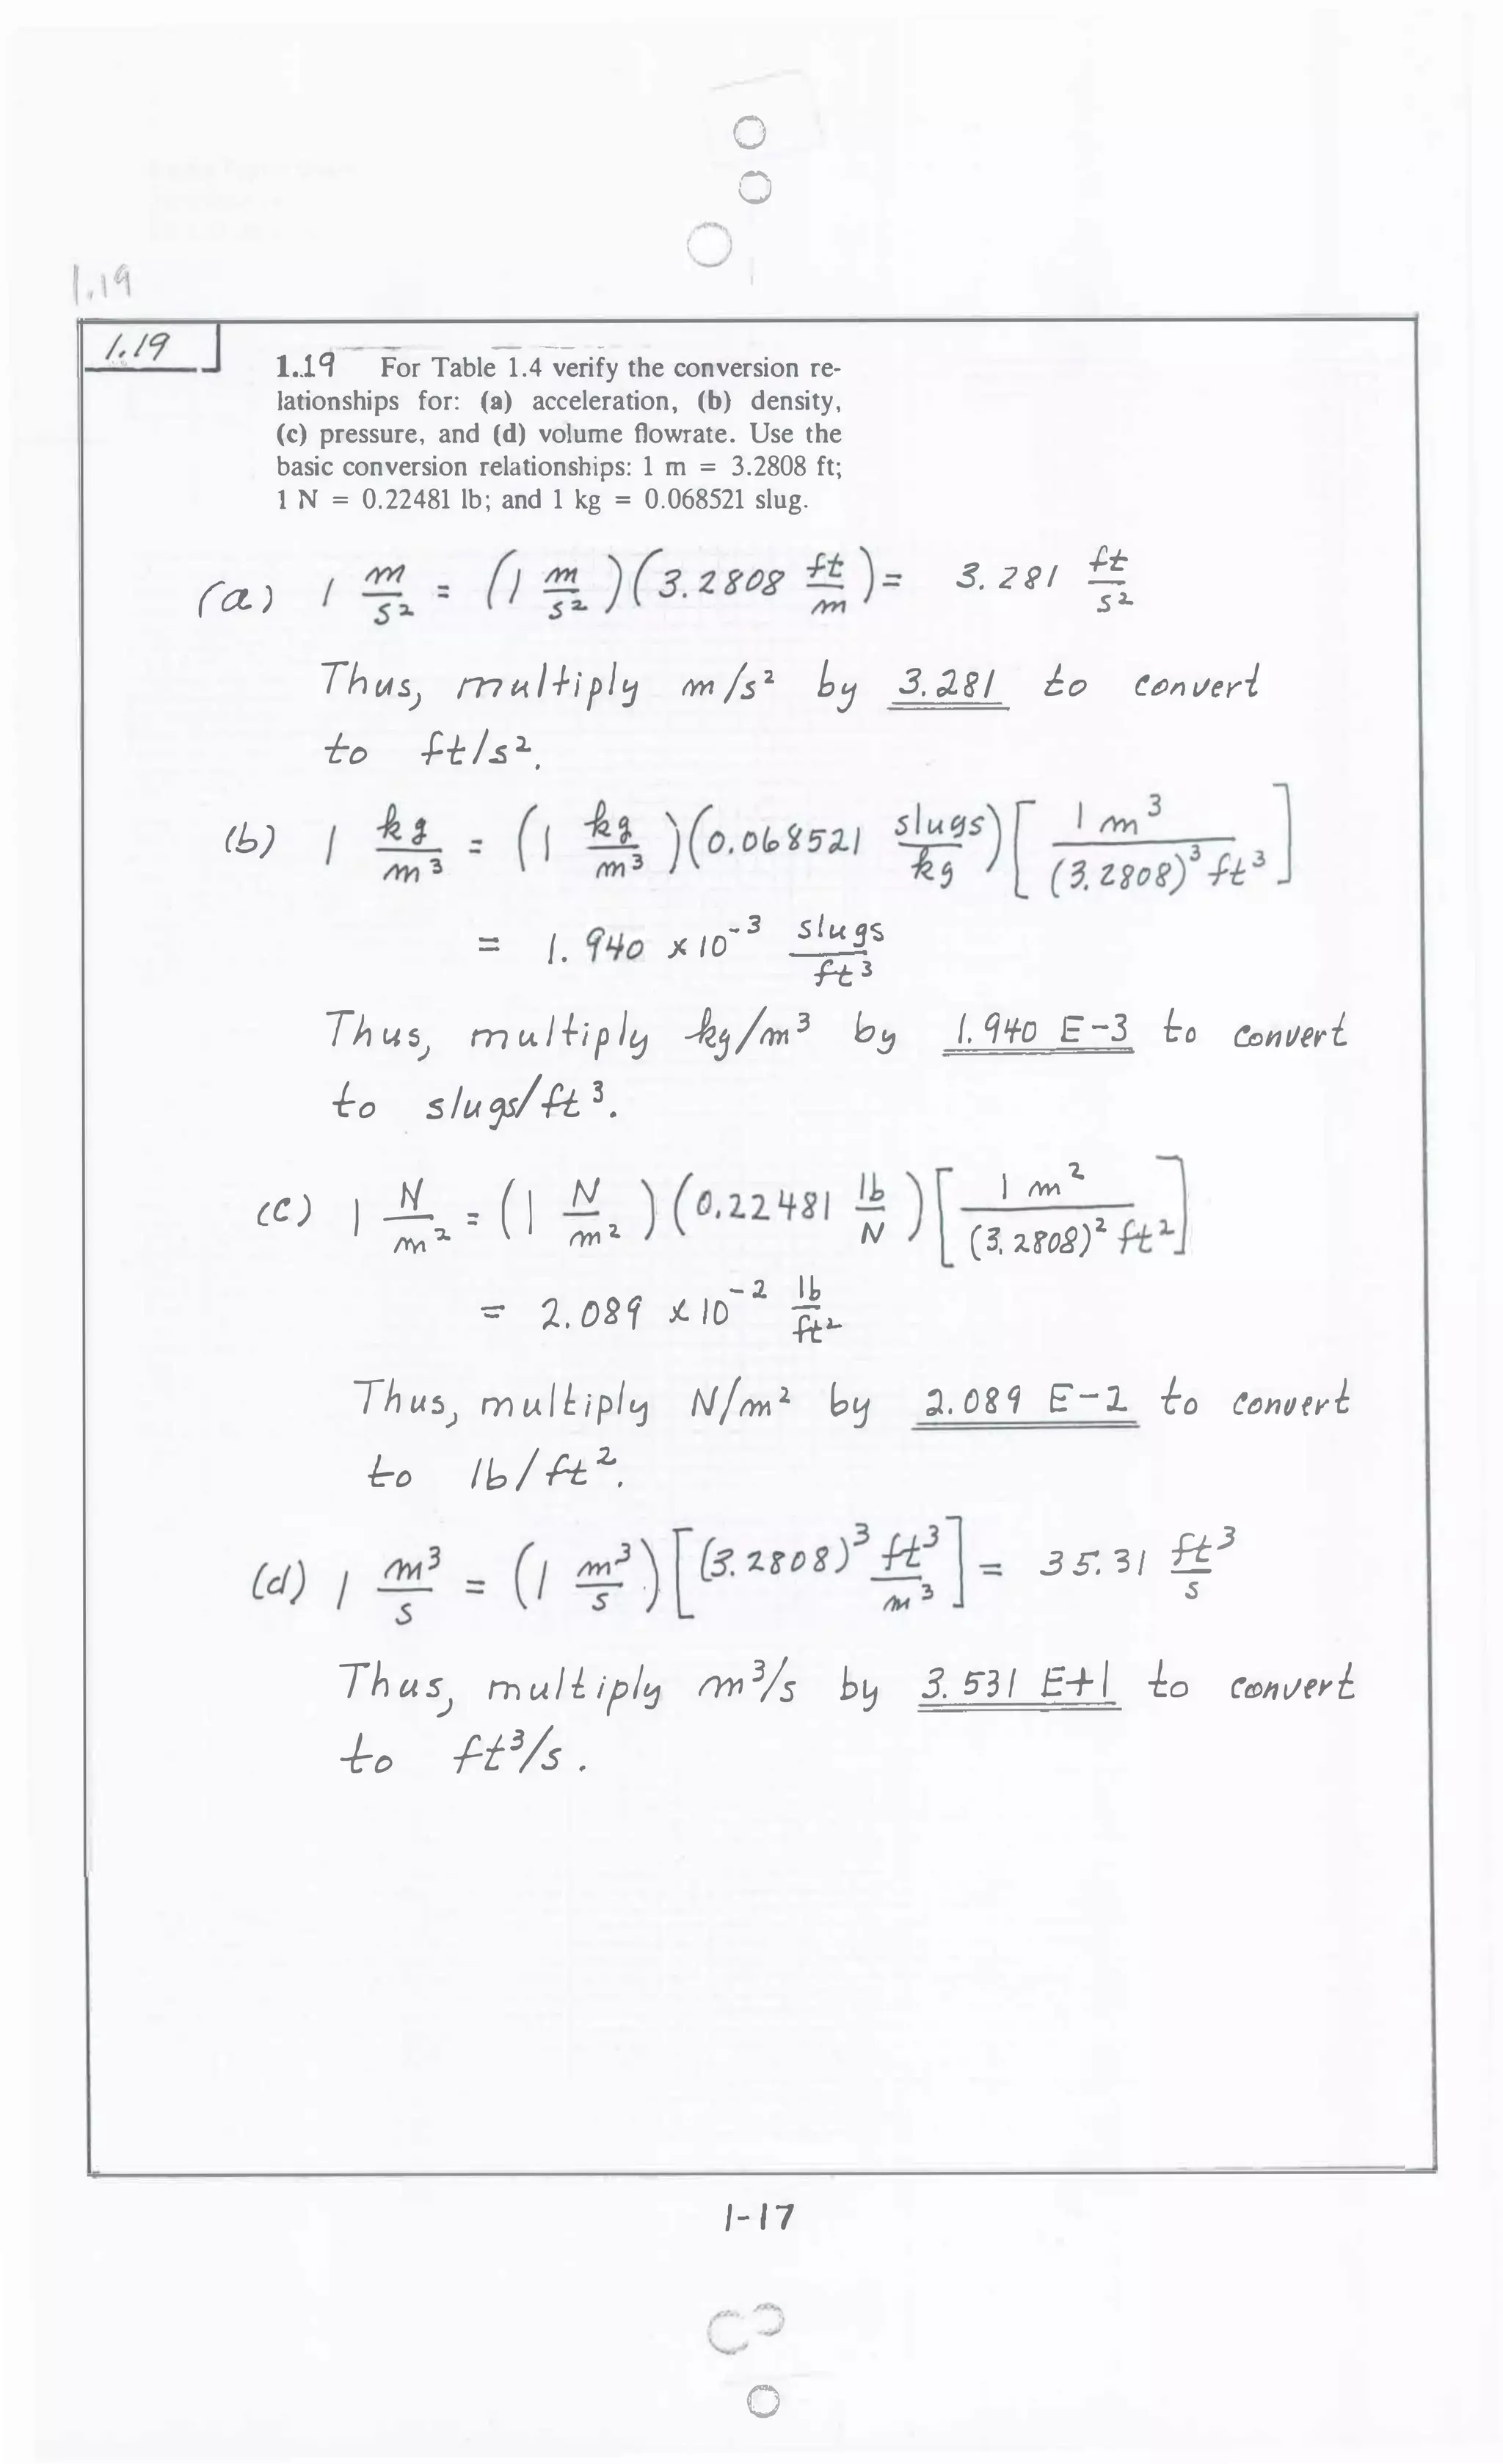 1.19
1.19
1.19 For Table 1.4 verify the conversion re-
lationships for: (a) acceleration, (b) density,
(c) pressure, and (d) volume flowrate. Use the
basic conversion relationships: 1 m = 3.2808 ft;
1 N = 0.22481 lb; and 1 kg = 0.068521 slug.
(a) 1 m/s² = (1 m/s²)(3.2808 ft/m) = 3.281 ft/s²
Thus, multiply m/s² by 3.281 to convert
to ft/s².
(b) 1 kg/m³ = (1 kg/m³)(0.068521 slugs/kg)[1 m³/(3.2808)³ ft³]
= 1.940 x 10⁻³ slugs/ft³
Thus, multiply kg/m³ by 1.940 E-3 to convert
to slugs/ft³.
(c) 1 N/m² = (1 N/m²)(0.22481 lb/N)[1 m²/(3.2808)² ft²]
= 2.089 x 10⁻² lb/ft²
Thus, multiply N/m² by 2.089 E-2 to convert
to lb/ft².
(d) 1 m³/s = (1 m³/s)[(3.2808)³ ft³/m³] = 35.31 ft³/s
Thus, multiply m³/s by 3.531 E+1 to convert
to ft³/s.
1-17